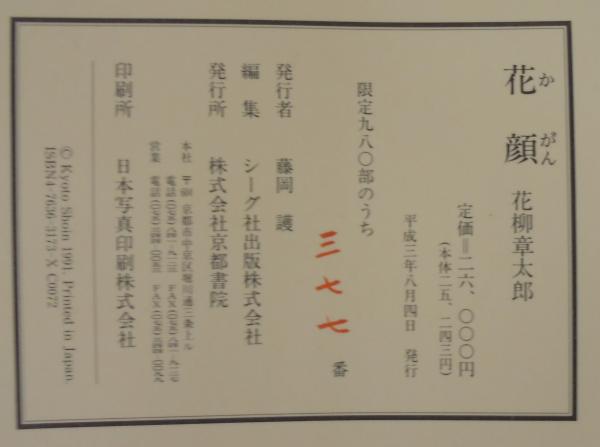 花顔 花柳章太郎
かがん
定価=二六、〇〇〇円
(本体二五、二四三円)
平成三年八月四日 発行
限定九八〇部のうち
三七七番
発行者 藤岡 護
編集 シーグ社出版株式会社
発行所 株式会社京都書院
本社 〒604 京都市中京区堀川通三条上ル
印刷所 日本写真印刷株式会社
© Kyoto Shoin 1991. Printed in Japan.
ISBN4-7636-3173-X C0072